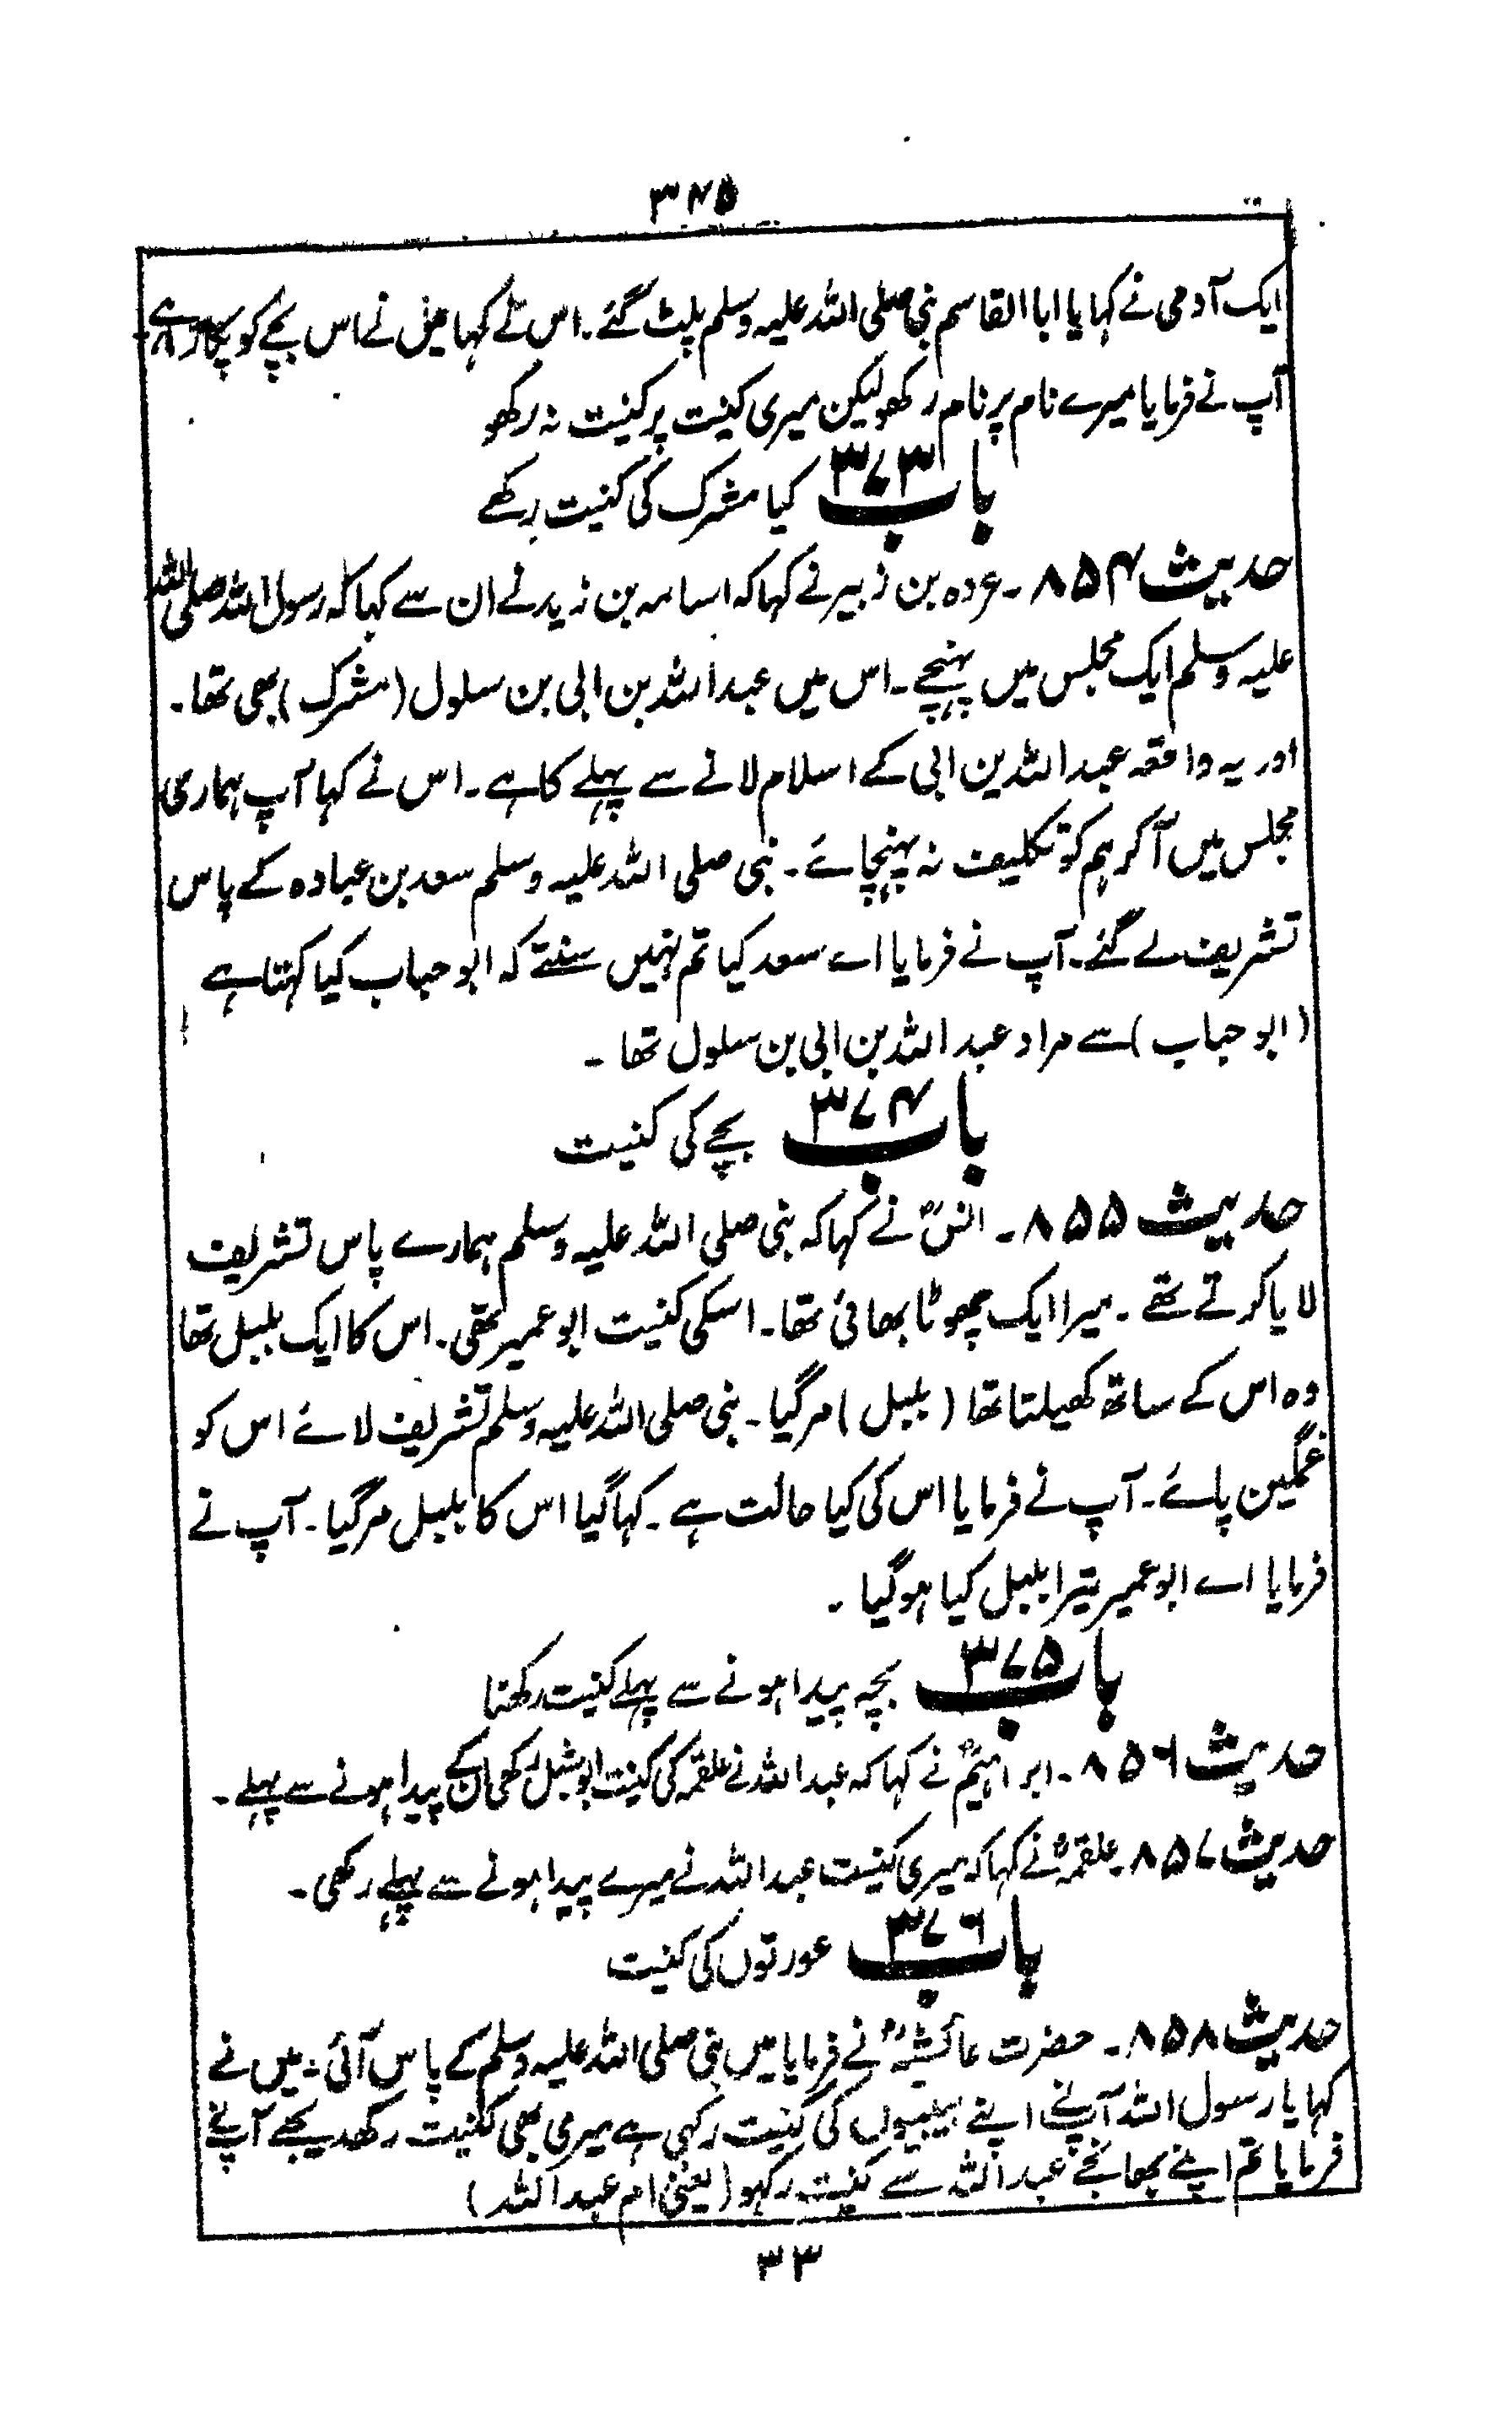 ۳۴۵
ایک آدمی نے کہا یا ابا القاسم نبی صلی اللہ علیہ وسلم پلٹ گئے۔ اس نے کہا میں نے اس بچے کو
آپ نے فرمایا میرے نام پر نام رکھو لیکن میری کنیت پر کنیت نہ رکھو
باب ۳۷۳ کیا مشرک کی کنیت رکھے
حدیث ۸۵۴۔ عروہ بن زبیر نے کہا کہ اسامہ بن زید نے ان سے کہا کہ رسول اللہ صلی اللہ
علیہ وسلم ایک مجلس میں پہنچے۔ اس میں عبد اللہ بن ابی بن سلول (مشرک) بھی تھا۔
اور یہ واقعہ عبد اللہ بن ابی کے اسلام لانے سے پہلے کا ہے۔ اس نے کہا آپ ہماری
مجلس میں آکر ہم کو تکلیف نہ پہنچائے۔ نبی صلی اللہ علیہ وسلم سعد بن عبادہ کے پاس
تشریف لے گئے۔ آپ نے فرمایا اے سعد کیا تم نہیں سنتے کہ ابو حباب کیا کہتا ہے
(ابو حباب) سے مراد عبد اللہ بن ابی بن سلول تھا۔
باب ۳۷۴ بچے کی کنیت
حدیث ۸۵۵۔ انسؓ نے کہا کہ نبی صلی اللہ علیہ وسلم ہمارے پاس تشریف
لایا کرتے تھے۔ میرا ایک چھوٹا بھائی تھا۔ اسکی کنیت ابو عمیر تھی۔ اس کا ایک بلبل تھا
وہ اس کے ساتھ کھیلتا تھا (بلبل) مر گیا۔ نبی صلی اللہ علیہ وسلم تشریف لائے اس کو
غمگین پائے۔ آپ نے فرمایا اس کی کیا حالت ہے۔ کہا گیا اس کا بلبل مر گیا۔ آپ نے
فرمایا اے ابو عمیر تیرا بلبل کیا ہو گیا۔
باب ۳۷۵ بچہ پیدا ہونے سے پہلے کنیت رکھنا
حدیث ۸۵۶۔ ابراہیمؒ نے کہا کہ عبد اللہ نے علقمہ کی کنیت ابو شبل رکھی ان کے پیدا ہونے سے پہلے۔
حدیث ۸۵۷۔ علقمہؒ نے کہا کہ میری کنیت عبد اللہ نے میرے پیدا ہونے سے پہلے رکھی۔
باب ۳۷۶ عورتوں کی کنیت
حدیث ۸۵۸۔ حضرت عائشہؓ نے فرمایا میں نبی صلی اللہ علیہ وسلم کے پاس آئی۔ میں نے
کہا یا رسول اللہ آپنے اپنے بیبیوں کی کنیت رکھی ہے میری بھی کنیت رکھدیجے آپنے
فرمایا تم اپنے بھانجے عبد اللہ سے کنیت رکھو (یعنی ام عبد اللہ)
۳۳